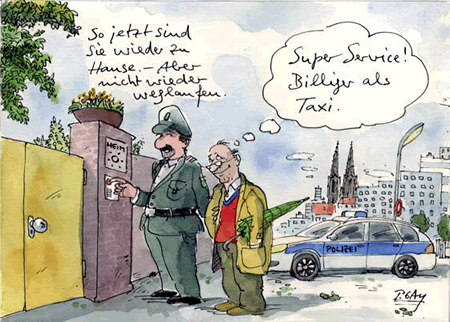 So jetzt sind
Sie wieder zu
Hause. – Aber
nicht wieder
weglaufen.
Super Service!
Billiger als
Taxi.
HEIM
POLIZEI
P. GAY